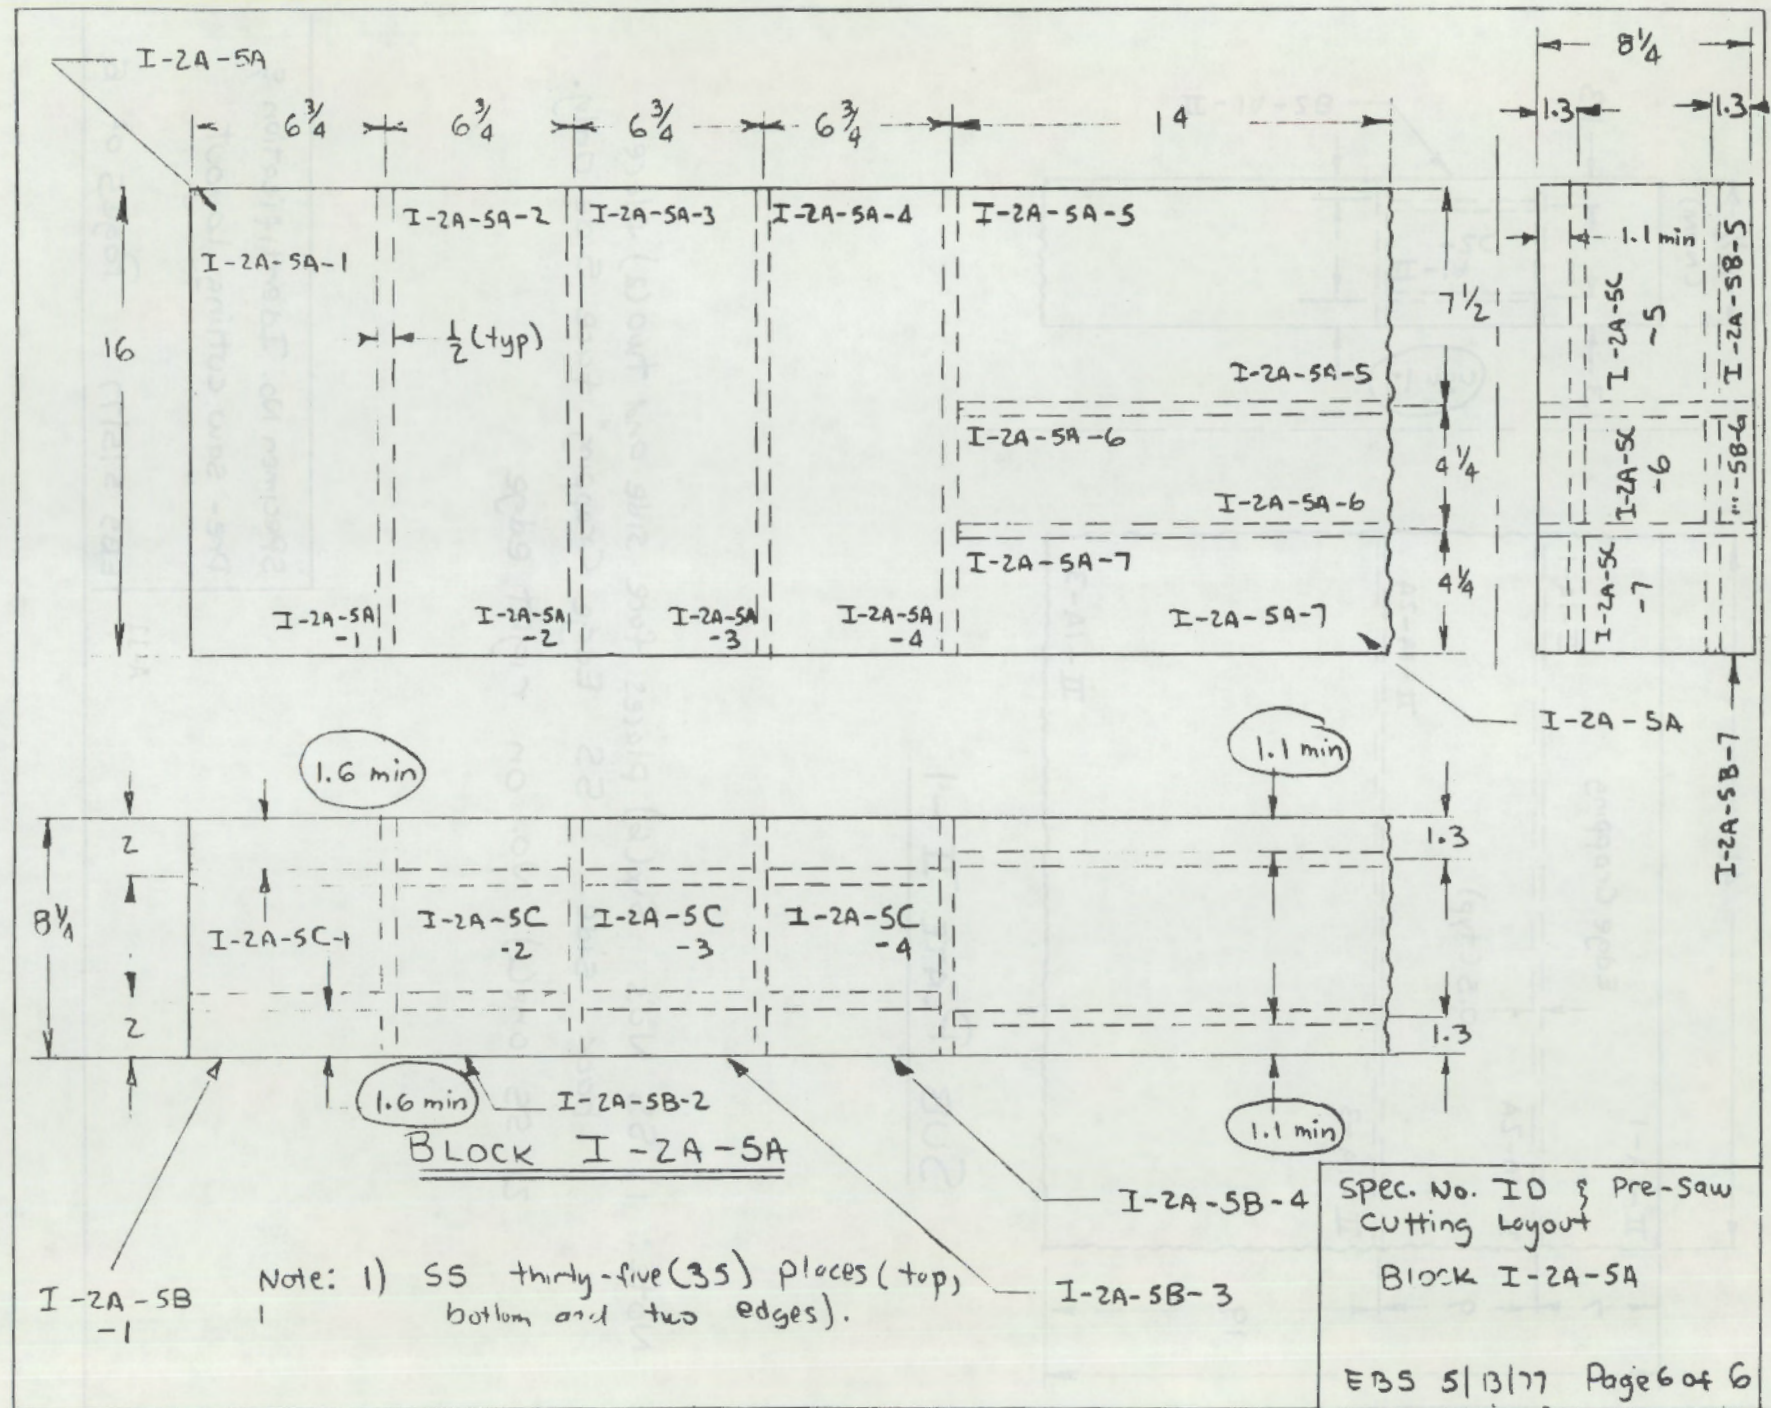 I-2A-5A
6 3/4
6 3/4
6 3/4
6 3/4
14
8 1/4
1.3
1.3
I-2A-5A-1
I-2A-5A-2
I-2A-5A-3
I-2A-5A-4
I-2A-5A-5
16
1/2 (typ)
7 1/2
1.1 min
I-2A-5C
-5
I-2A-5B-5
I-2A-5A-5
I-2A-5A-6
4 1/4
I-2A-5C
-6
"'-5B-6
I-2A-5A-6
I-2A-5A-7
4 1/4
I-2A-5C
-7
I-2A-5A
-1
I-2A-5A
-2
I-2A-5A
-3
I-2A-5A
-4
I-2A-5A-7
I-2A-5A
I-2A-5B-7
1.6 min
1.1 min
2
1.3
8 1/4
I-2A-5C-1
I-2A-5C
-2
I-2A-5C
-3
I-2A-5C
-4
2
1.3
1.6 min
I-2A-5B-2
1.1 min
BLOCK I-2A-5A
I-2A-5B-4
I-2A-5B
-1
Note: 1) SS thirty-five (35) places (top,
bottom and two edges).
I-2A-5B-3
Spec. No. ID & Pre-Saw
Cutting Layout
Block I-2A-5A
EBS 5/13/77 Page 6 of 6